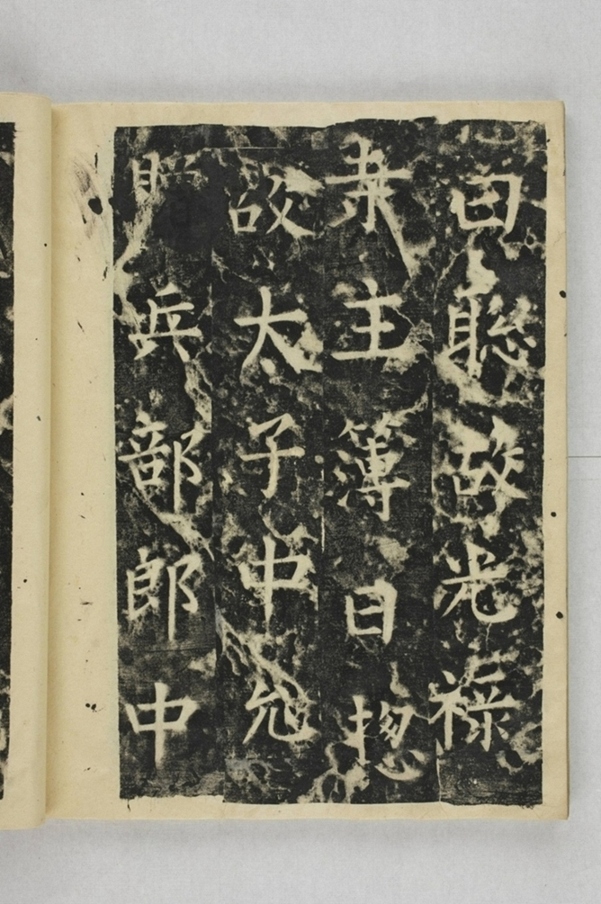 曰聦故光祿
寺主簿曰揔
故太子中允
兵部郎中